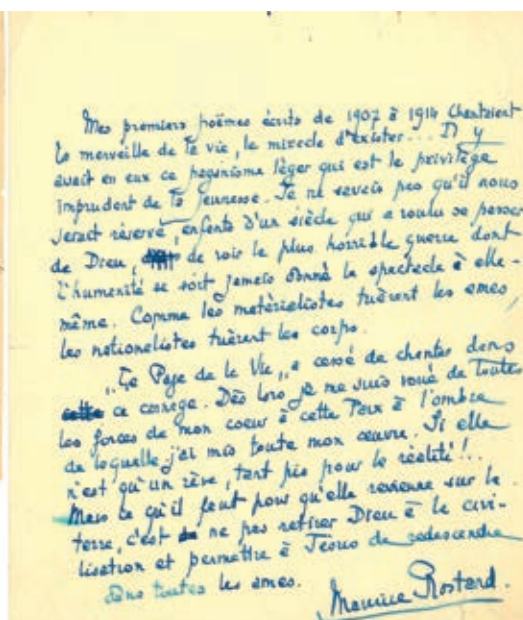 Mes premiers poèmes écrits de 1907 à 1914 chantaient
la merveille de la vie, le miracle d'exister... Il y
avait en eux ce paganisme léger qui est le privilège
imprudent de la jeunesse. Je ne savais pas qu'il nous
serait réservé, enfants d'un siècle qui a voulu se passer
de Dieu, de voir la plus horrible guerre dont
l'humanité se soit jamais donné le spectacle à elle-
même. Comme les matérialistes tuèrent les âmes,
les nationalistes tuèrent les corps.
"Le Page de la Vie" a cessé de chanter dans
ce carnage. Dès lors je me suis voué de toutes
les forces de mon coeur à cette Paix à l'ombre
de laquelle j'ai mis toute mon œuvre. Si elle
n'est qu'un rêve, tant pis pour la réalité!..
Mais ce qu'il faut pour qu'elle revienne sur la
terre, c'est ne pas retirer Dieu à la civi-
lisation et permettre à Jésus de redescendre
dans toutes les ames.
Maurice Rostand.